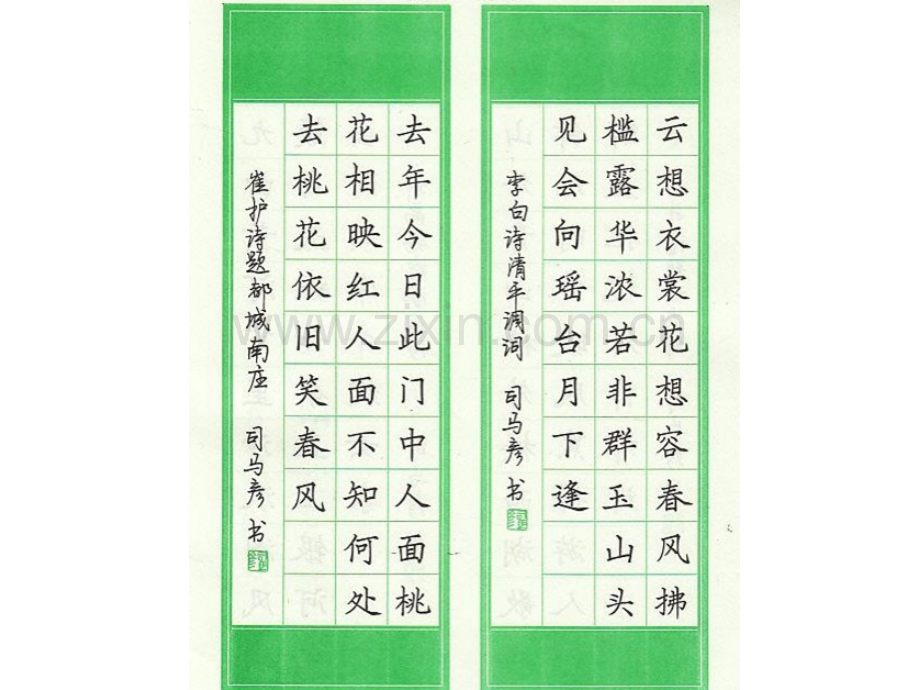 云想衣裳花想容春风拂
槛露华浓若非群玉山头
见会向瑶台月下逢
李白诗清平调词 司马彦书
去年今日此门中人面桃
花相映红人面不知何处
去桃花依旧笑春风
崔护诗题都城南庄 司马彦书
www.zixin.com.cn